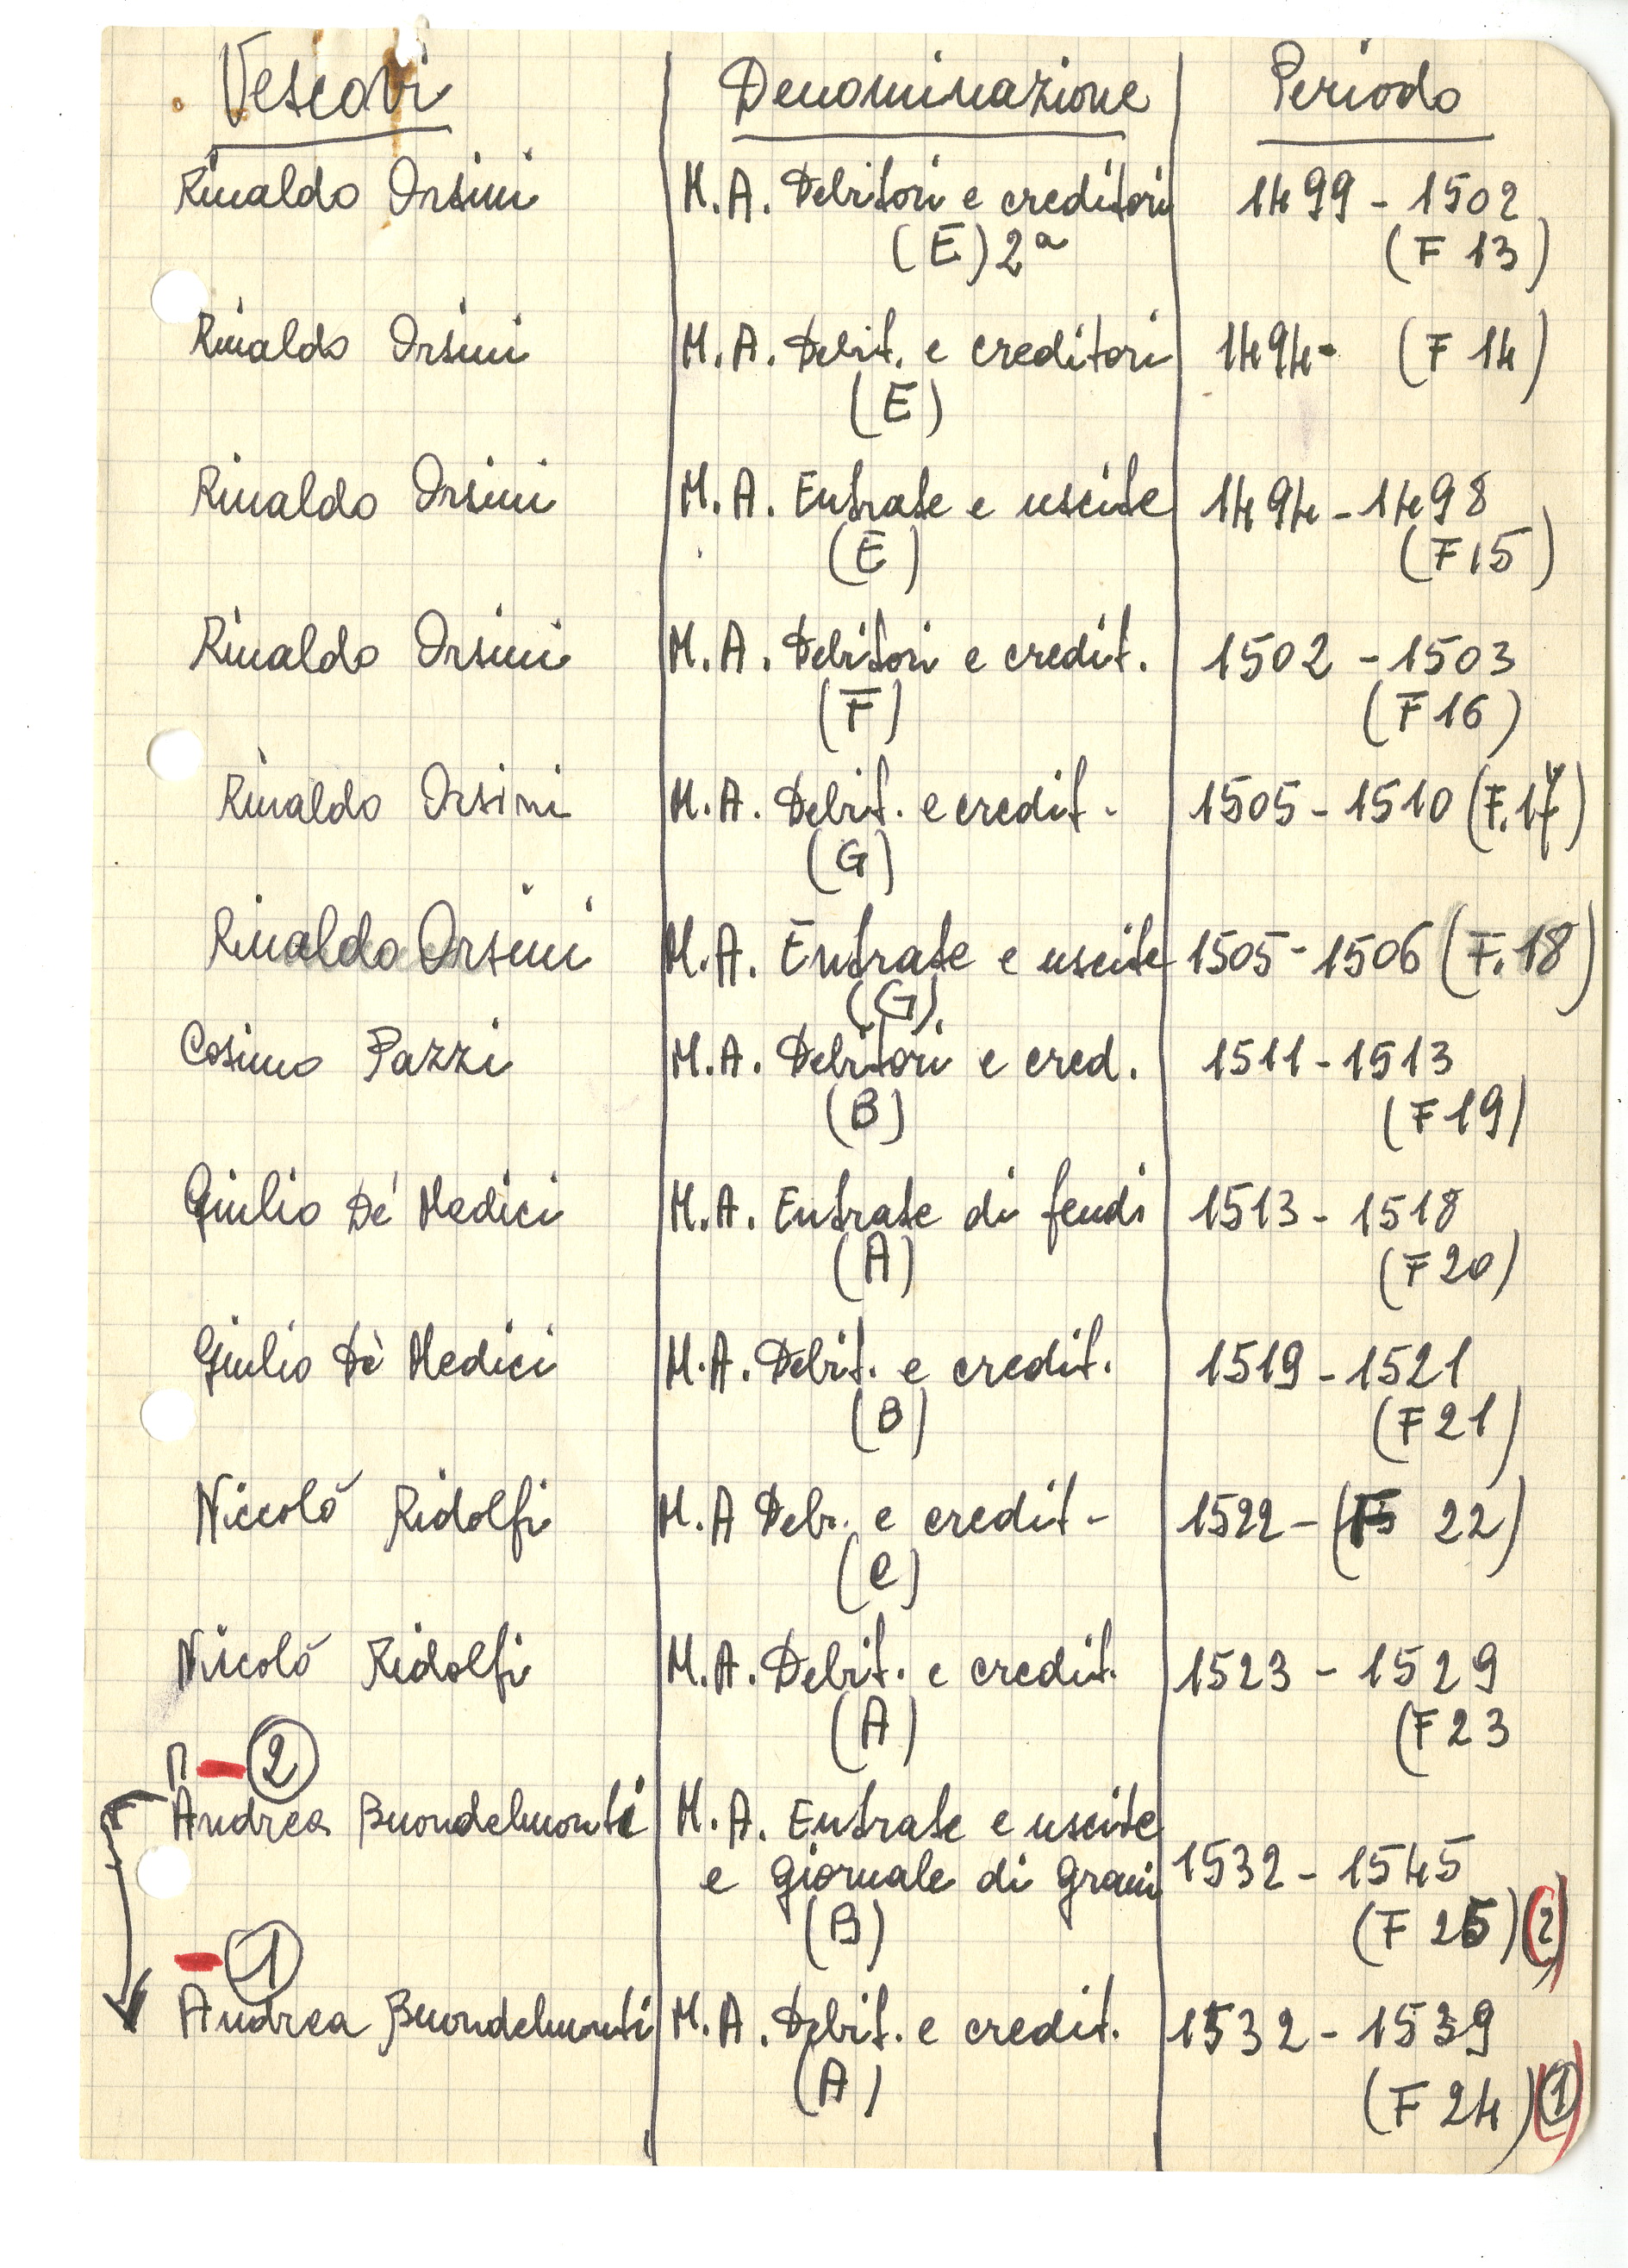 Vescovi Denominazione Periodo
Rinaldo Orsini M.A. Debitori e creditori 1499 - 1502
(E) 2ª (F 13)
Rinaldo Orsini M.A. Debit. e creditori 1494- (F 14)
(E)
Rinaldo Orsini M.A. Entrate e uscite 1494 - 1498
(E) (F 15)
Rinaldo Orsini M.A. Debitori e credit. 1502 - 1503
(F) (F 16)
Rinaldo Orsini M.A. Debit. e credit - 1505 - 1510 (F. 17)
(G)
Rinaldo Orsini M.A. Entrate e uscite 1505 - 1506 (F. 18)
(G)
Cosimo Pazzi M.A. Debitori e cred. 1511 - 1513
(B) (F 19)
Giulio Dé Medici M.A. Entrate di feudi 1513 - 1518
(A) (F 20)
Giulio Dè Medici M.A. Debit. e credit. 1519 - 1521
(B) (F 21)
Niccoló Ridolfi M.A Debr. e credit - 1522 - (F 22)
(C)
Niccoló Ridolfi M.A. Debit. e credit. 1523 - 1529
(A) (F 23
2
Andrea Buondelmonti M.A. Entrate e uscite
e giornale di grani 1532 - 1545
(B) (F 25) (2)
- 1
Andrea Buondelmonti M.A. Debit. e credit. 1532 - 1539
(A) (F 24) (1)